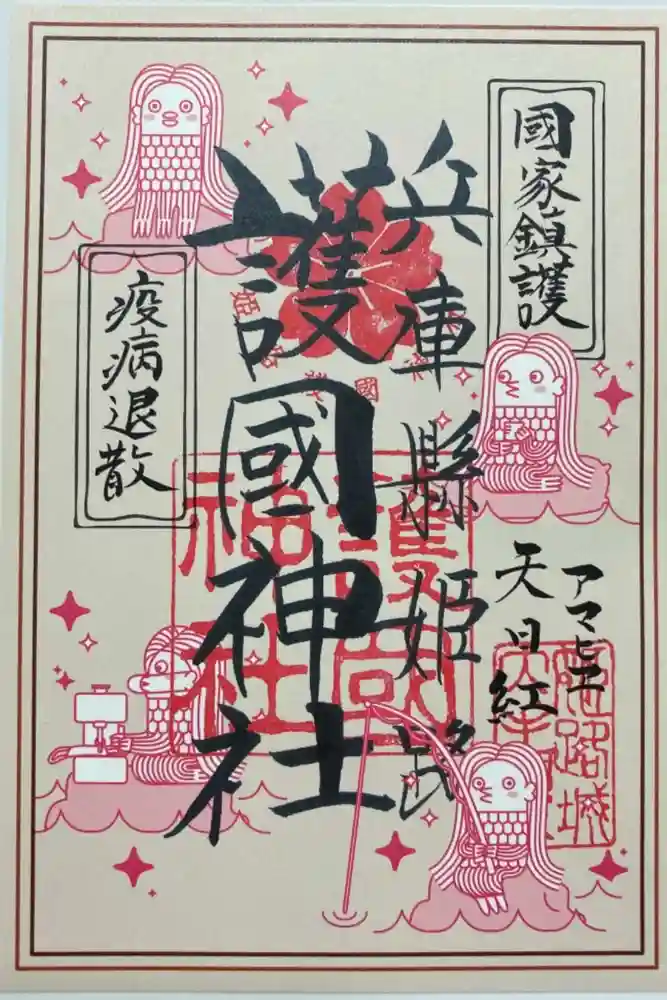 國家鎮護
アマビエ
天日紅
姫路城
兵庫縣姫路
護國神社
護國
神社
疫病退散